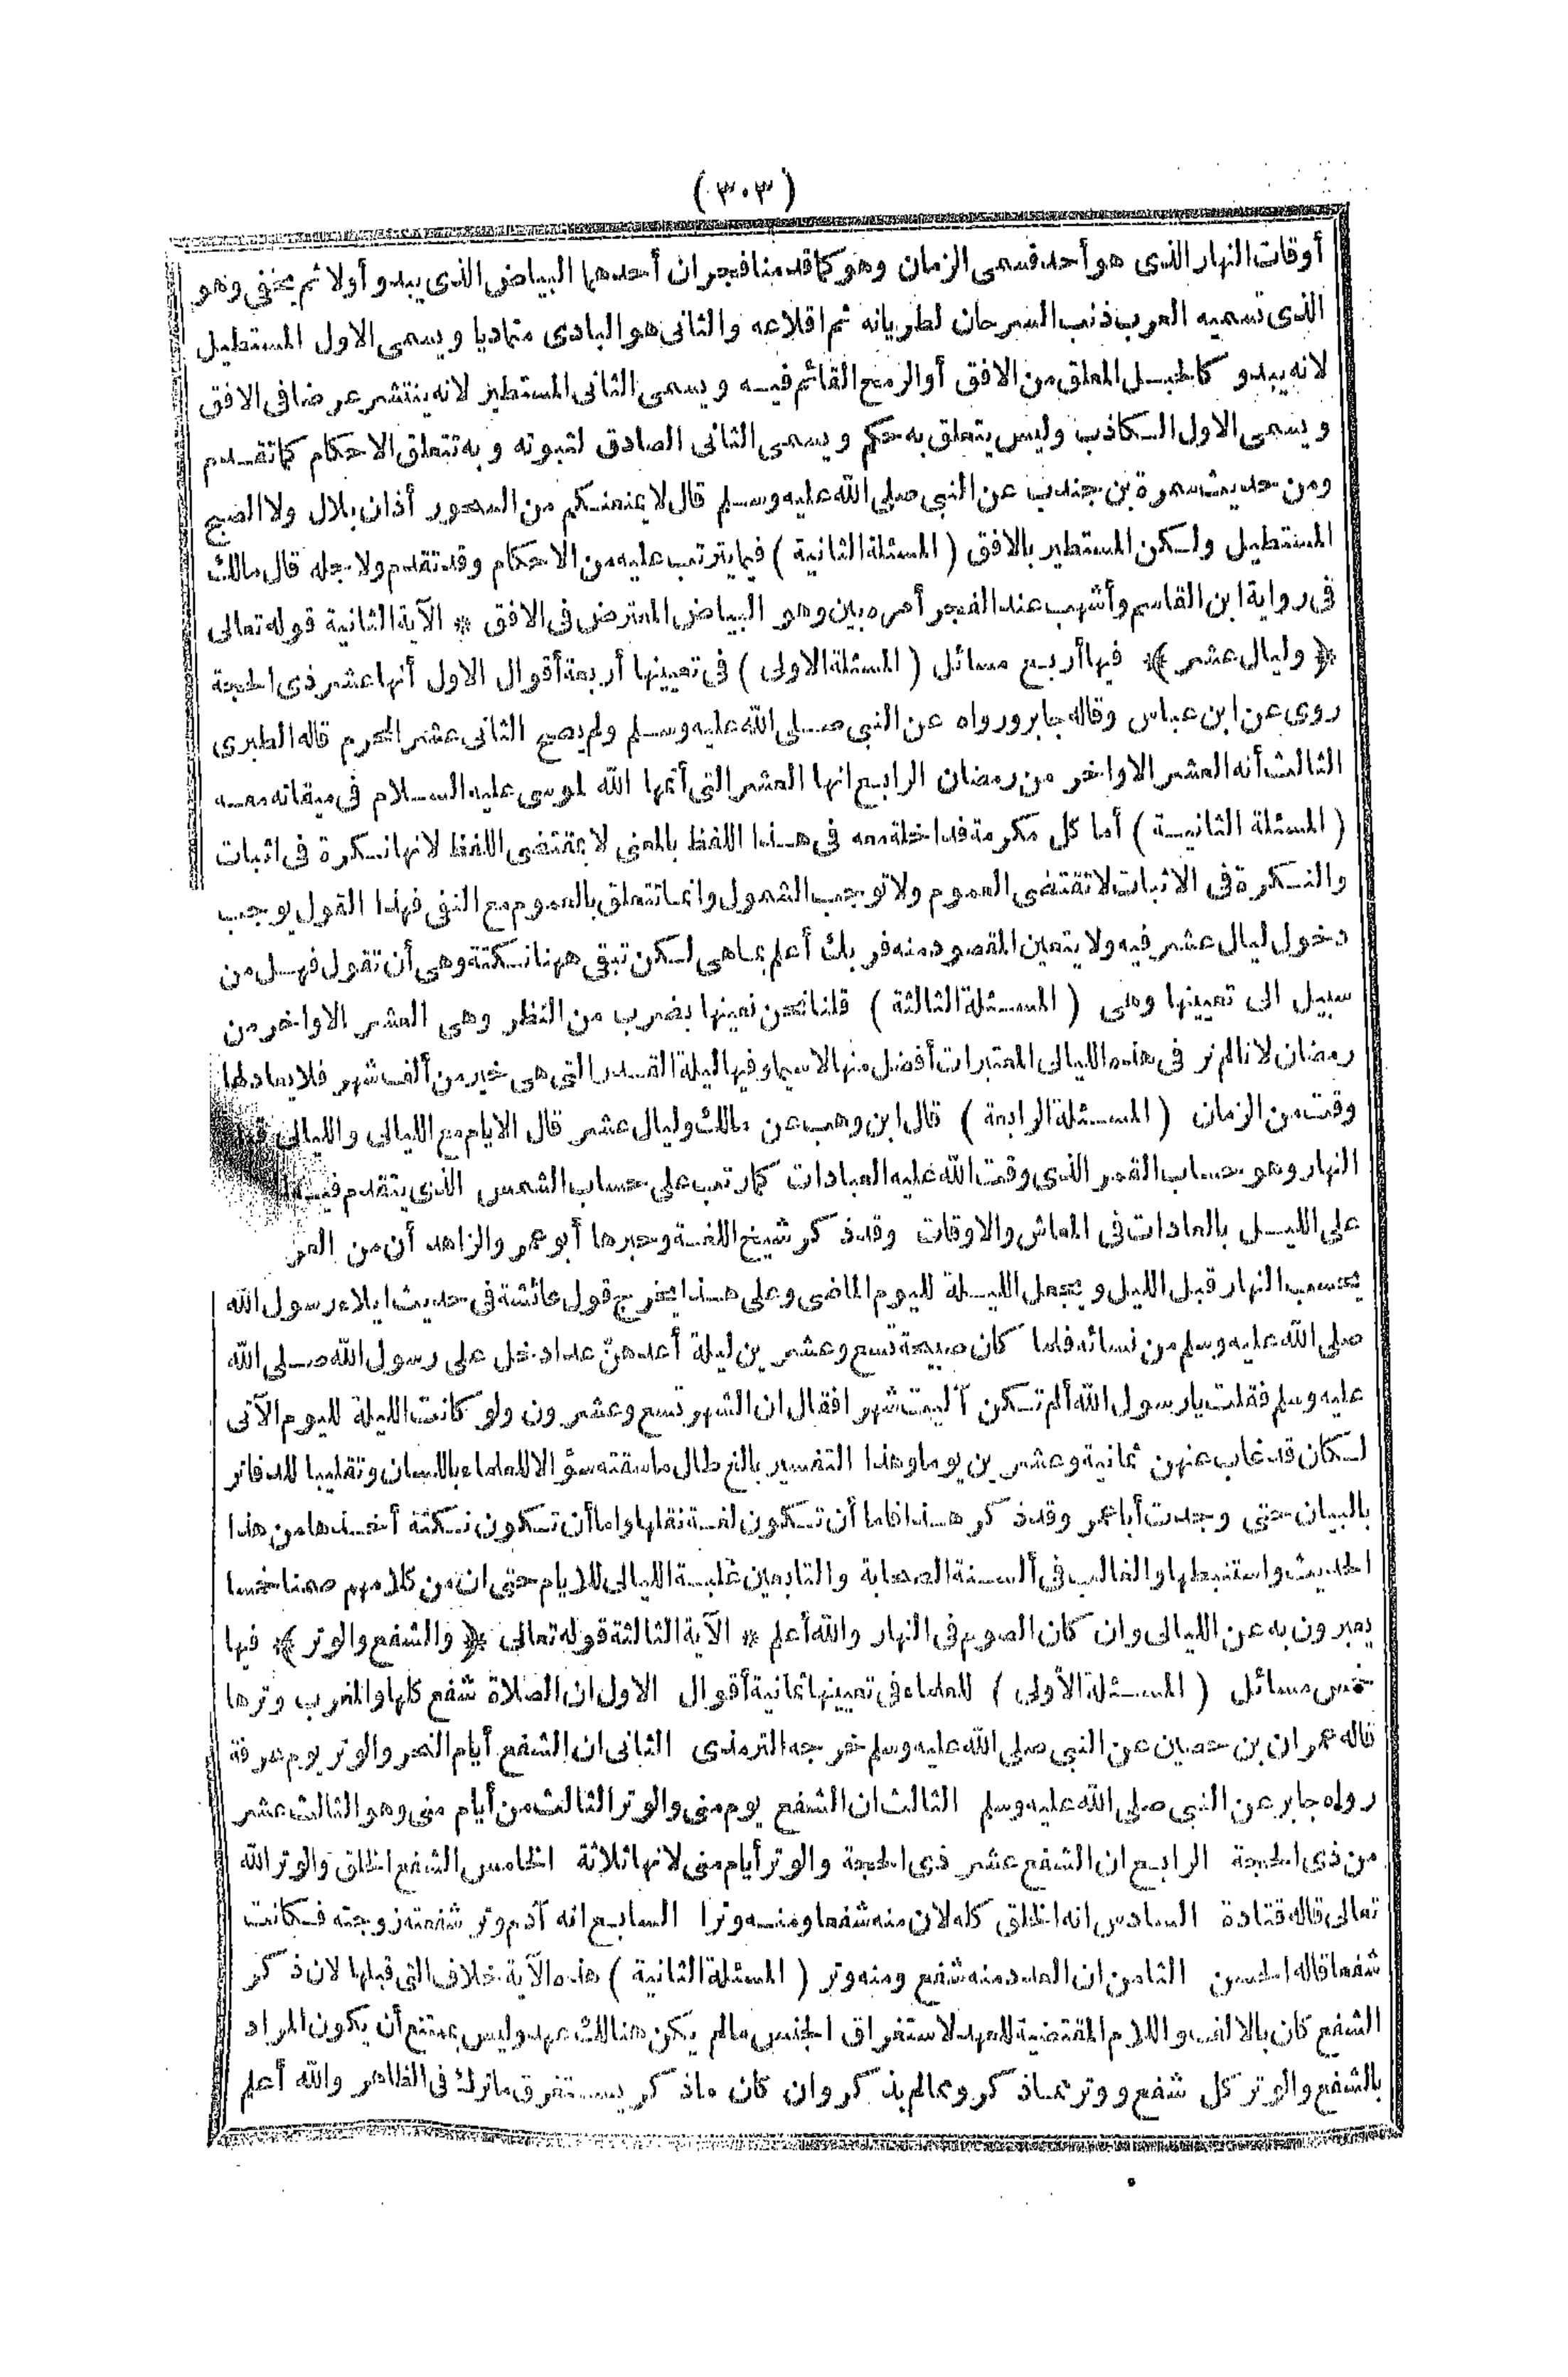 (٣٠٣)
أوقات النهار الذى هو أحد قسمى الزمان وهو كما قدمنا فجران أحدهما البياض الذى يبدو أولا ثم يخفى وهو
الذى تسميه العرب ذنب السرحان لطريانه ثم اقلاعه والثانى هو البادى متماديا ويسمى الاول المستطيل
لانه يبدو كالحبل المعلق من الافق أو الرمح القائم فيه ويسمى الثانى المستطير لانه ينتشر عرضا فى الافق
ويسمى الاول الكاذب وليس يتعلق به حكم ويسمى الثانى الصادق لثبوته وبه تتعلق الاحكام كما تقدم
ومن حديث سمرة بن جندب عن النبى صلى الله عليه وسلم قال لا يمنعنكم من السحور أذان بلال ولا الصبح
المستطيل ولكن المستطير بالافق (المسئلة الثانية) فيما يترتب عليه من الاحكام وقد تقدم ولاجله قال مالك
فى رواية ابن القاسم وأشهب عند الفجر أمره بين وهو البياض المعترض فى الافق * الآية الثانية قوله تعالى
﴿وليال عشر﴾ فيها أربع مسائل (المسئلة الاولى) فى تعيينها أربعة أقوال الاول أنها عشر ذى الحجة
روى عن ابن عباس وقاله جابر ورواه عن النبى صلى الله عليه وسلم ولم يصح الثانى عشر المحرم قاله الطبرى
الثالث أنه العشر الاواخر من رمضان الرابع انها العشر التى أتمها الله لموسى عليه السلام فى ميقاته معه
(المسئلة الثانية) أما كل مكرمة فداخلة معه فى هذا اللفظ بالمعنى لا بمقتضى اللفظ لانها نكرة فى اثبات
والنكرة فى الاثبات لا تقتضى العموم ولا توجب الشمول وانما تتعلق بالعموم مع النفى فهذا القول يوجب
دخول ليال عشر فيه ولا يتعين المقصود منه فربك أعلم بما هى لكن تبقى ههنا نكتة وهى أن تقول فهل من
سبيل الى تعيينها وهى (المسئلة الثالثة) قلنا نحن نعينها بضرب من النظر وهى العشر الاواخر من
رمضان لانا لم نر فى هذه الليالى المعتبرات أفضل منها لا سيما وفيها ليلة القدر التى هى خير من ألف شهر فلا يعادلها
وقت من الزمان (المسئلة الرابعة) قال ابن وهب عن مالك وليال عشر قال الايام مع الليالى والليالى قبل
النهار وهو حساب القمر الذى وقت الله عليه العبادات كما رتب على حساب الشمس الذى يتقدم فيه
على الليل بالعادات فى المعاش والاوقات وقد ذكر شيخ اللغة وحبرها أبو عمر والزاهد أن من العر
يحسب النهار قبل الليل ويجعل الليلة لليوم الماضى وعلى هذا يخرج قول عائشة فى حديث ايلاء رسول الله
صلى الله عليه وسلم من نسائه فلما كان صبيحة تسع وعشرين ليلة أعدهن عدا دخل على رسول الله صلى الله
عليه وسلم فقلت يا رسول الله ألم تكن آليت شهرا فقال ان الشهر تسع وعشرون ولو كانت الليلة لليوم الآتى
لكان قد غاب عنهن ثمانية وعشرين يوما وهذا التفسير بالغ طال ما سقته سؤالا للعلماء باللسان وتقليبا للدفاتر
بالبيان حتى وجدت أبا عمر وقد ذكر هذا فاما أن تكون لغة نقلها واما أن تكون نكتة أخذها من هذا
الحديث واستنبطها والغالب فى ألسنة الصحابة والتابعين غلبة الليالى للايام حتى ان من كلامهم صمنا خمسا
يعبرون به عن الليالى وان كان الصوم فى النهار والله أعلم * الآية الثالثة قوله تعالى ﴿والشفع والوتر﴾ فيها
خمس مسائل (المسئلة الأولى) للعلماء فى تعيينها ثمانية أقوال الاول ان الصلاة شفع كلها والمغرب وترها
قاله عمران بن حصين عن النبى صلى الله عليه وسلم خرجه الترمذى الثانى ان الشفع أيام النحر والوتر يوم عرفة
رواه جابر عن النبى صلى الله عليه وسلم الثالث ان الشفع يوم منى والوتر الثالث من أيام منى وهو الثالث عشر
من ذى الحجة الرابع ان الشفع عشر ذى الحجة والوتر أيام منى لانها ثلاثة الخامس الشفع الخلق والوتر الله
تعالى قاله قتادة السادس انه الخلق كله لان منه شفعا ومنه وترا السابع انه آدم وتر شفعته زوجته فكانت
شفعا قاله الحسن الثامن ان العدد منه شفع ومنه وتر (المسئلة الثانية) هذه الآية خلاف التى قبلها لان ذكر
الشفع كان بالالف واللام المقتضية للعهد لاستغراق الجنس ما لم يكن هنالك عهد وليس بممتنع أن يكون المراد
بالشفع والوتر كل شفع ووتر مما ذكر ومما لم يذكر وان كان ما ذكر يستغرق ما ترك فى الظاهر والله أعلم